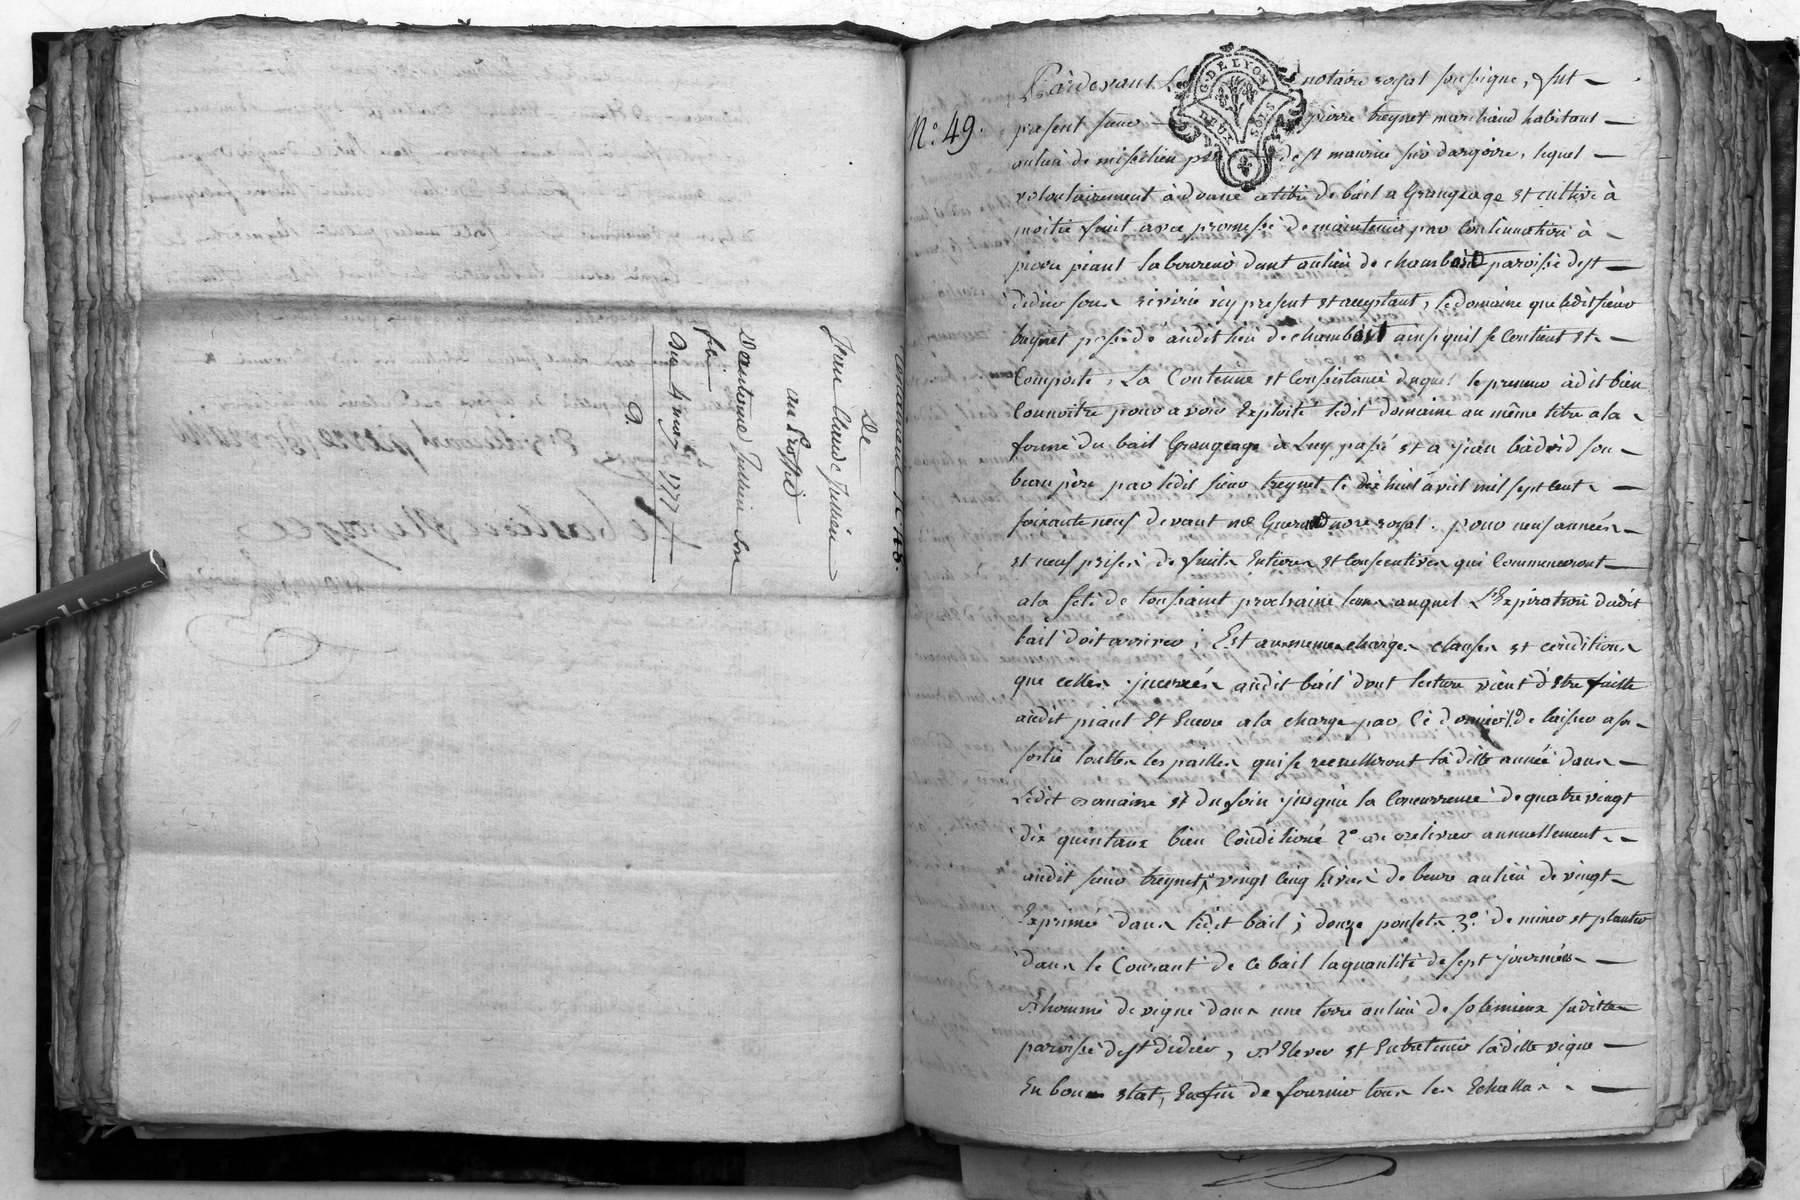 testament N.° 48.
De
Jean Claude Jullien
au profit
D'antoine Jullien son
fils
Du 4 mars 1777
N.° 49.
G. DE LYON
DEUX SOLS
Pardevant Le notaire royal soussigné, fut
présent sieur pierre treynet marchand habitant
au lieu de de st maurice sur dargoire, lequel
volontairement à donné a titre de bail a Grangeage et cultive à
moitié fruit avec promesse de maintenir par Continuation à
pierre piant laboureur dont au lieu de chambost paroisse de st
didier sous riviere icy present et acceptant, le domaine que ledit sieur
treynet possede audit lieu de chambost ainsi quil se Contient et
Comporte, La Contenue et Consistance duquel le preneur à dit bien
Connoitre pour avoir Exploité ledit domaine au même titre a la
forme du bail Grangeage à Luy passé et a jean son
beau pere par ledit sieur treynet le dix huit avril mil sept cent
soixante neuf devant me nore royal. pour neuf années
et neuf prises de fruits Entieres et Consecutives qui Commenceront
a la fete de toussaint prochaine tems auquel L'Expiration dudit
bail doit arriver; Et aux memes charges clauses et conditions
que celles incerées audit bail dont lecture vient d'etre faitte
audit piant Et Encore a la charge par Ce dernier 1° de laisser a sa
sortie touttes les pailles qui se recuelliront laditte année dans
Ledit domaine et du foin jusqu'a la Concurrence de quatre vingt
dix quintaux bien Conditioné 2° de relivrer annuellement
audit sieur treynet vingt cinq livres de beure au lieu de vingt
Exprimé dans ledit bail; douze poulets 3° de miner et planter
dans le Courant de ce bail la quantité de sept journées
d'homme de vigne dans une terre au lieu de solemieux suditte
paroisse de st didier, d'Elever et Entretenir laditte vigne
En bon etat, Enfin de fournir tous les Echallas